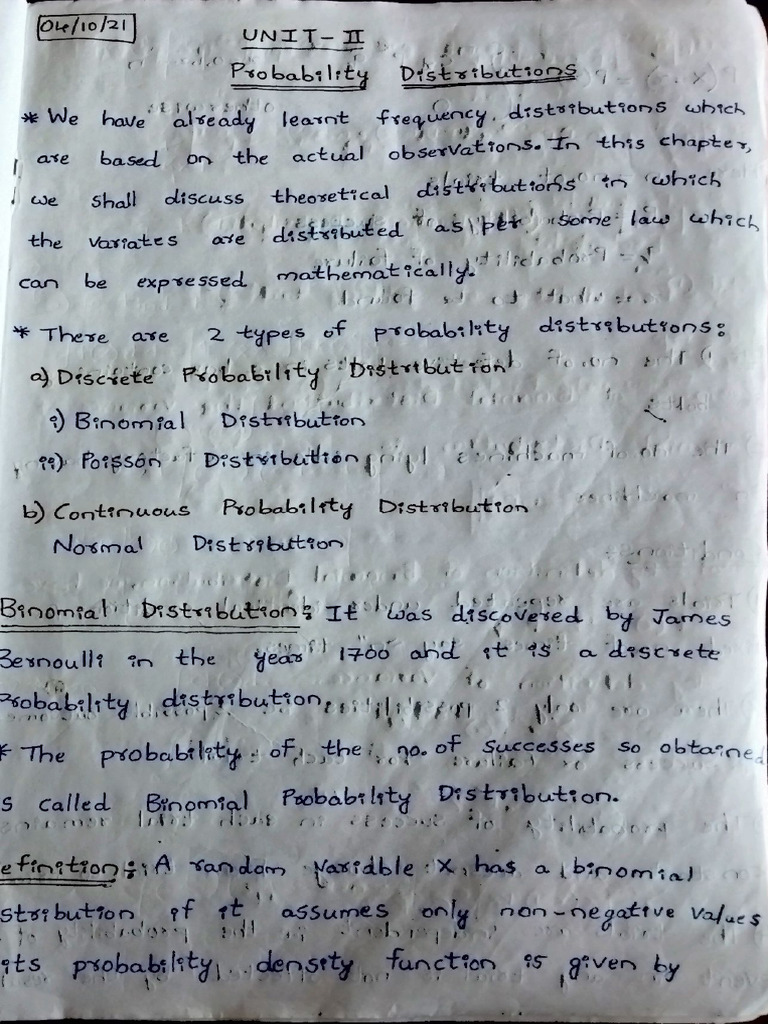 04/10/21
UNIT-II
Probability Distributions
* We have already learnt frequency distributions which
are based on the actual observations. In this chapter,
we shall discuss theoretical distributions in which
the variates are distributed as per some law which
can be expressed mathematically.
* There are 2 types of probability distributions:
a) Discrete Probability Distribution
i) Binomial Distribution
ii) Poisson Distribution
b) Continuous Probability Distribution
Normal Distribution
Binomial Distribution: It was discovered by James
Bernoulli in the year 1700 and it is a discrete
Probability distribution.
* The probability of the no. of successes so obtained
s called Binomial Probability Distribution.
efinition: A random variable X has a binomial
stribution if it assumes only non-negative values
its probability density function is given by